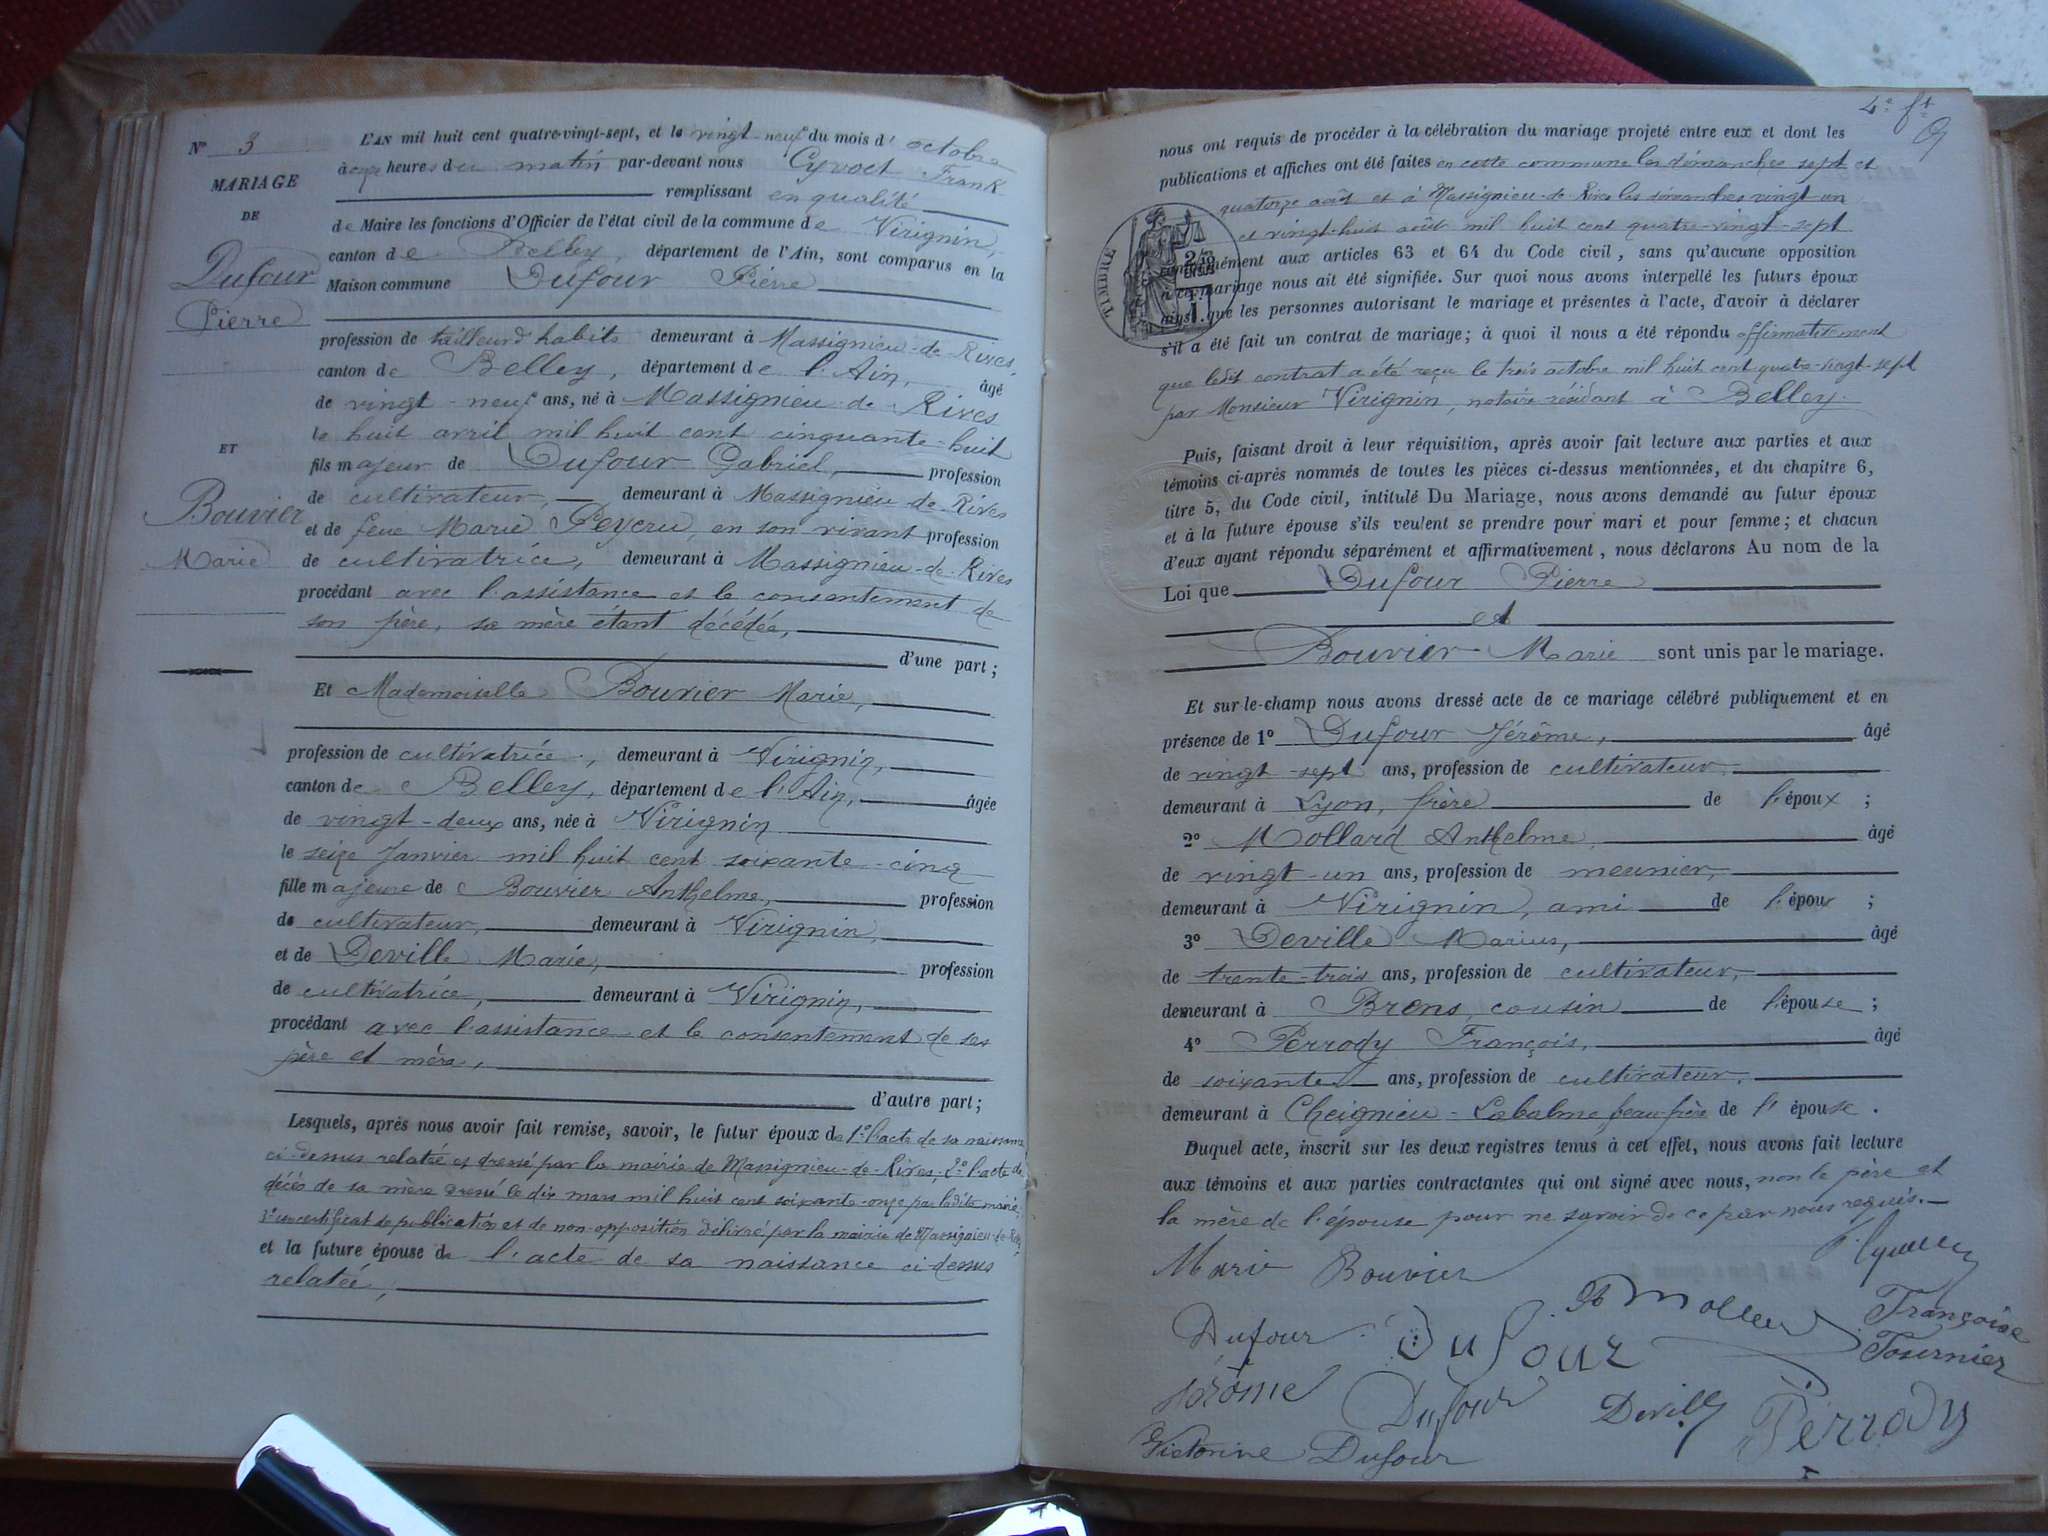 N° 3
MARIAGE
DE
Dufour
Pierre
ET
Bouvier
Marie
L'AN mil huit cent quatre-vingt-sept, et le vingt-neuf du mois d'octobre
à onze heures du matin par-devant nous Cyvoct Frank
remplissant en qualité
de Maire les fonctions d'Officier de l'état civil de la commune de Virignin,
canton de Belley, département de l'Ain, sont comparus en la
Maison commune Dufour Pierre
profession de tailleur d'habits demeurant à Massignieu-de-Rives,
canton de Belley, département de l'Ain, âgé
de vingt-neuf ans, né à Massignieu-de-Rives
le huit avril mil huit cent cinquante-huit
fils majeur de Dufour Gabriel, profession
de cultivateur, demeurant à Massignieu-de-Rives
et de feue Marie Peycru, en son vivant profession
de cultivatrice, demeurant à Massignieu-de-Rives
procédant avec l'assistance et le consentement de
son père, sa mère étant décédée,
d'une part;
Et Mademoiselle Bouvier Marie,
profession de cultivatrice, demeurant à Virignin,
canton de Belley, département de l'Ain, âgée
de vingt-deux ans, née à Virignin
le seize Janvier mil huit cent soixante-cinq
fille majeure de Bouvier Anthelme, profession
de cultivateur, demeurant à Virignin,
et de Deville Marie, profession
de cultivatrice, demeurant à Virignin,
procédant avec l'assistance et le consentement de ses
père et mère,
d'autre part;
Lesquels, après nous avoir fait remise, savoir, le futur époux de 1° l'acte de sa naissance
ci-dessus relatée et dressé par la mairie de Massignieu-de-Rives, 2° l'acte de
décès de sa mère dressé le dix mars mil huit cent soixante-onze par ladite mairie,
3° un certificat de publication et de non-opposition délivré par la mairie de Massignieu-de-Rives
et la future épouse de l'acte de sa naissance ci-dessus
relatée,
4e ft
nous ont requis de procéder à la célébration du mariage projeté entre eux et dont les
publications et affiches ont été faites en cette commune les dimanches sept et
quatorze août et à Massignieu-de-Rives les dimanches vingt-un
et vingt-huit août mil huit cent quatre-vingt-sept
TIMBRE
conformément aux articles 63 et 64 du Code civil, sans qu'aucune opposition
à ce mariage nous ait été signifiée. Sur quoi nous avons interpellé les futurs époux
ainsi que les personnes autorisant le mariage et présentes à l'acte, d'avoir à déclarer
s'il a été fait un contrat de mariage; à quoi il nous a été répondu affirmativement
que ledit contrat a été reçu le trois octobre mil huit cent quatre-vingt-sept
par Monsieur Virignin, notaire résidant à Belley.
Puis, faisant droit à leur réquisition, après avoir fait lecture aux parties et aux
témoins ci-après nommés de toutes les pièces ci-dessus mentionnées, et du chapitre 6,
titre 5, du Code civil, intitulé Du Mariage, nous avons demandé au futur époux
et à la future épouse s'ils veulent se prendre pour mari et pour femme; et chacun
d'eux ayant répondu séparément et affirmativement, nous déclarons Au nom de la
Loi que Dufour Pierre
et
Bouvier Marie sont unis par le mariage.
Et sur-le-champ nous avons dressé acte de ce mariage célébré publiquement et en
présence de 1° Dufour Jérôme, âgé
de vingt-sept ans, profession de cultivateur,
demeurant à Lyon, frère de l'époux;
2° Mollard Anthelme, âgé
de vingt-un ans, profession de meunier,
demeurant à Virignin, ami de l'époux;
3° Deville Marius, âgé
de trente-trois ans, profession de cultivateur,
demeurant à Brens, cousin de l'épouse;
4° Perrody François, âgé
de soixante ans, profession de cultivateur,
demeurant à Cheignieu-Labalme, beau-frère de l'épouse.
Duquel acte, inscrit sur les deux registres tenus à cet effet, nous avons fait lecture
aux témoins et aux parties contractantes qui ont signé avec nous, non le père et
la mère de l'épouse pour ne savoir de ce par nous requis.
Marie Bouvier
Dufour Dufour Françoise
Tournier
Jérôme Dufour Deville Perrody
Victorine Dufour